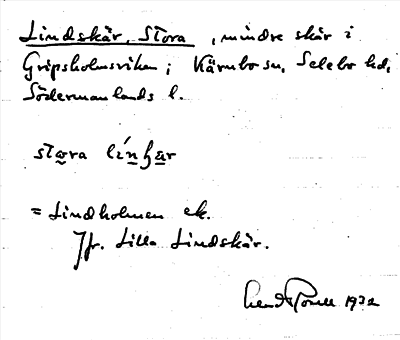 Lindskär, Stora, mindre skär i
Gripsholmsviken; Kärnbo sn, Selebo hd,
Södermanlands l.
stωra línʒar
= Lindholmen ek.
Jfr. Lilla Lindskär.
1932